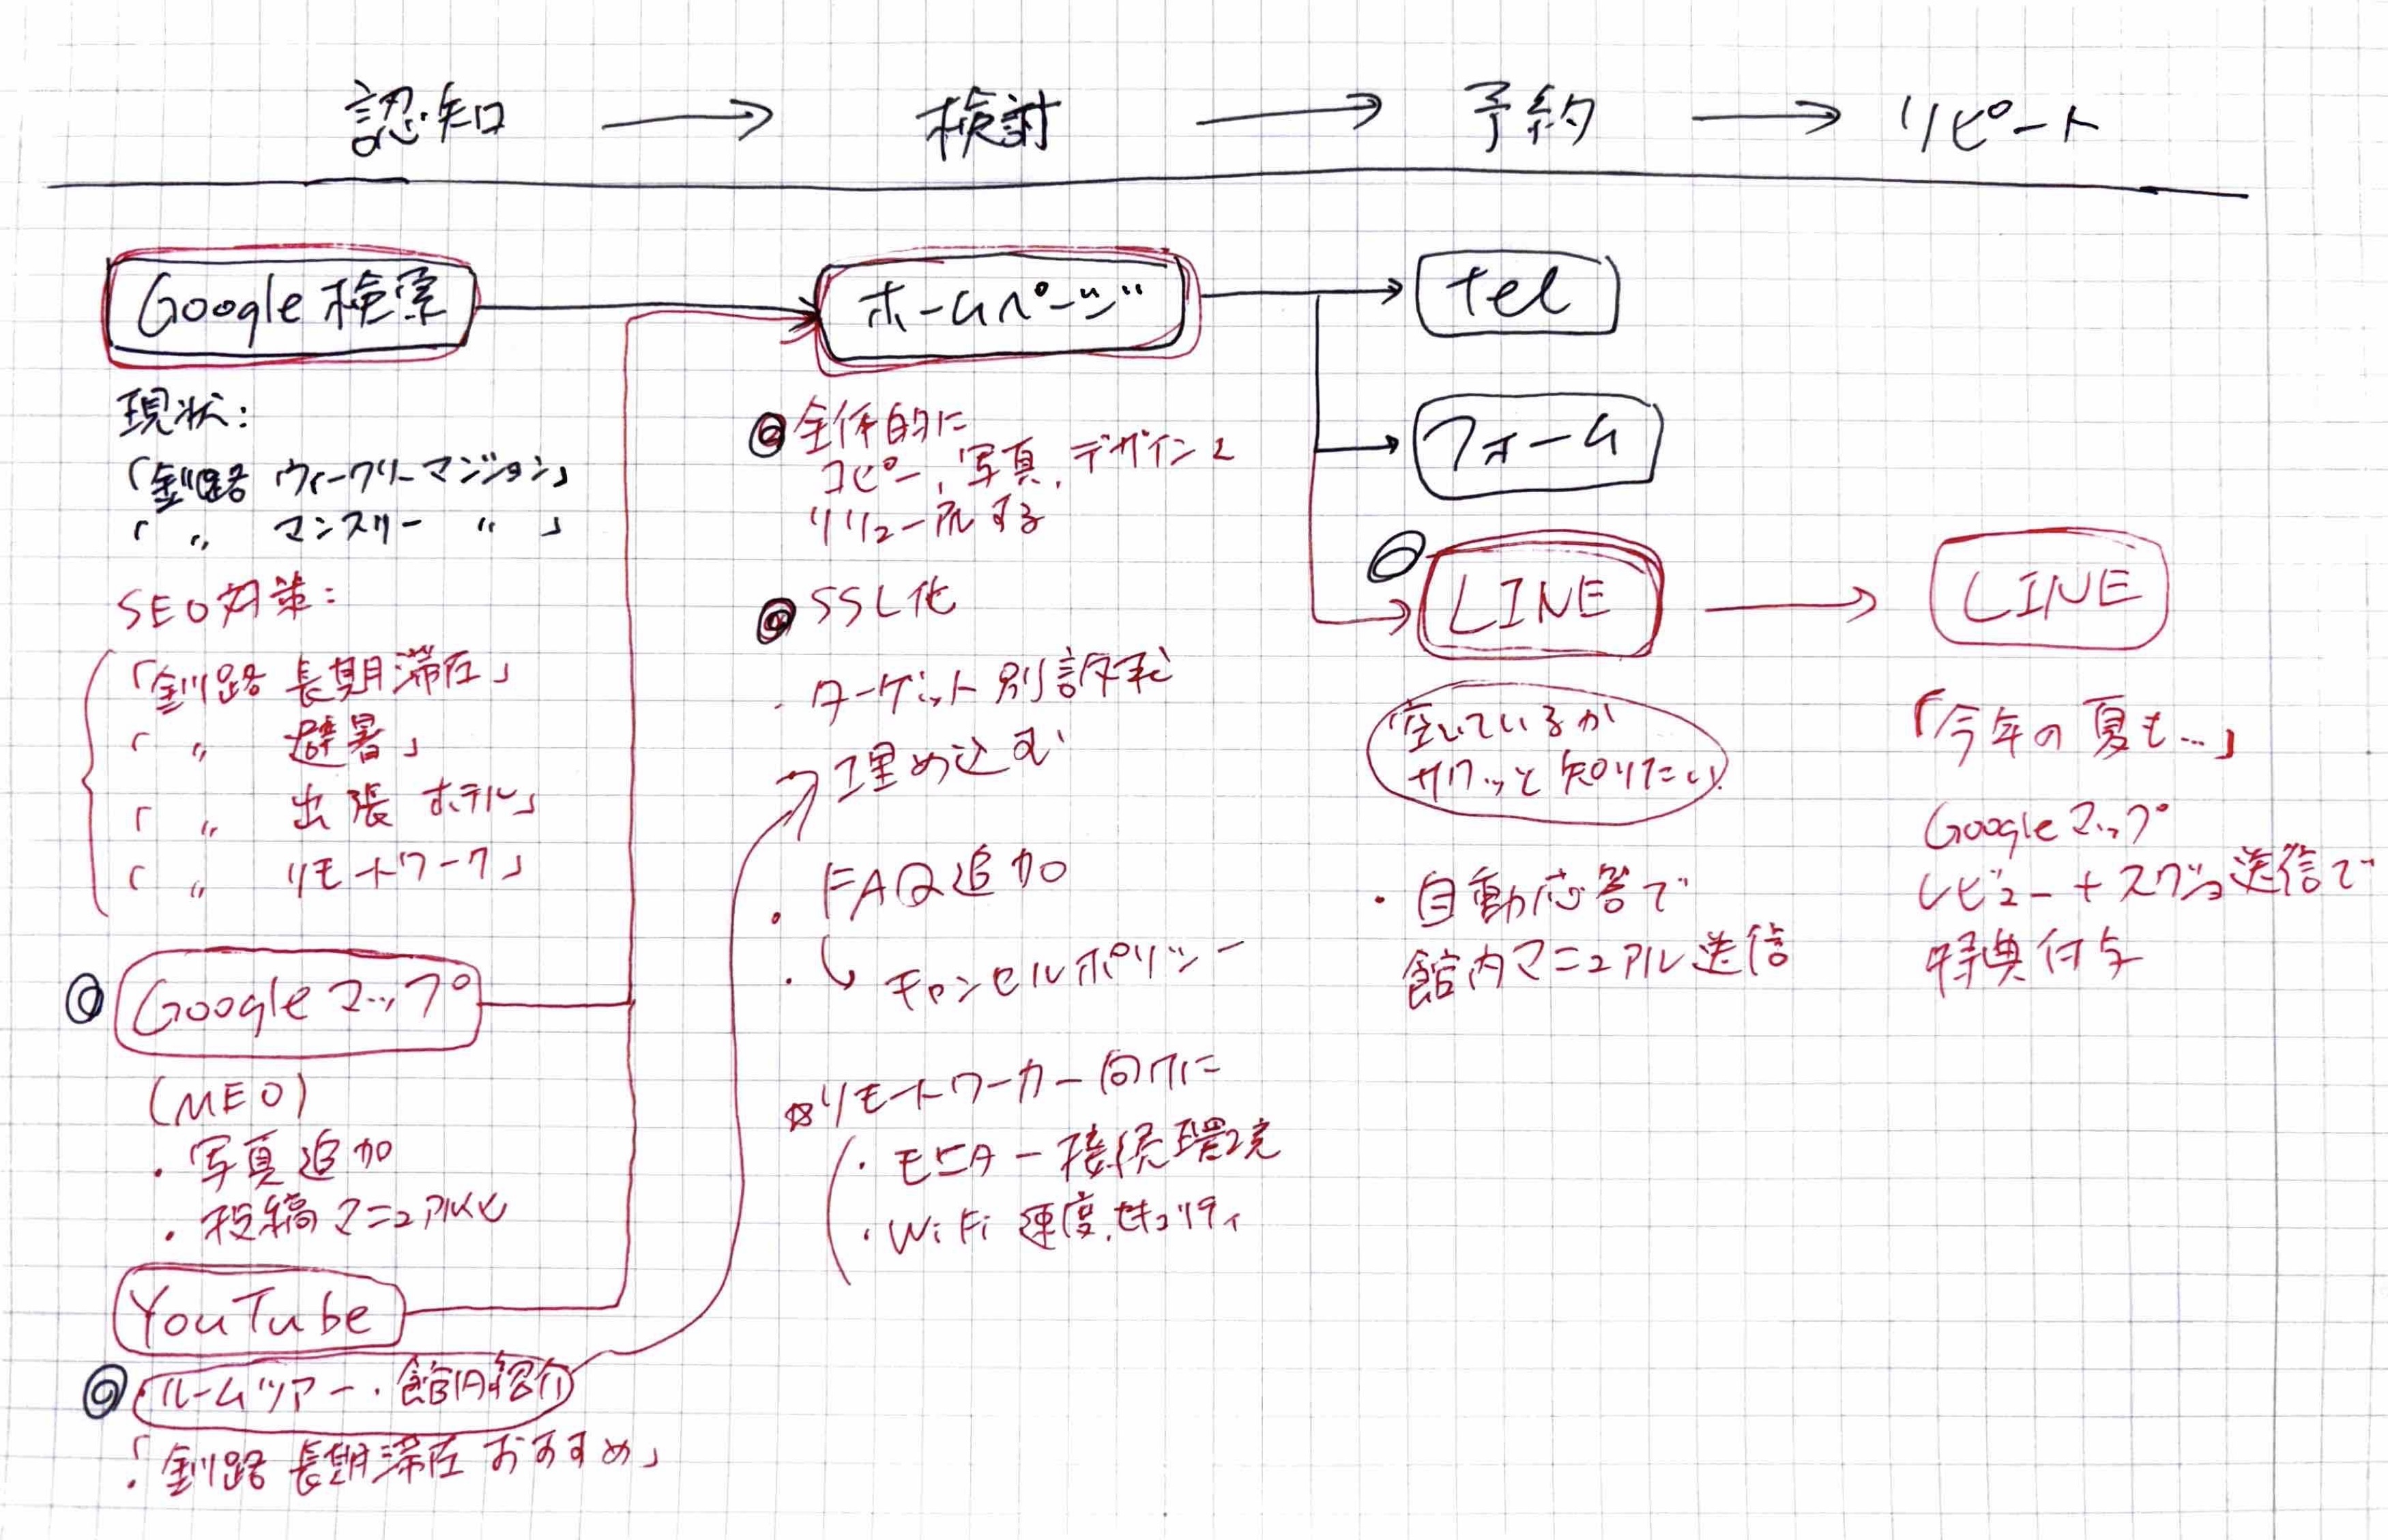 認知 → 検討 → 予約 → リピート
Google 検索
現状:
「釧路 ウィークリーマンション」
「 〃 マンスリー 〃 」
SEO対策:
「釧路 長期滞在」
「 〃 避暑」
「 〃 出張 ホテル」
「 〃 リモートワーク」
◎ Google マップ
(MEO)
・写真追加
・投稿マニュアル化
YouTube
◎ ・ルームツアー・館内紹介
・「釧路 長期滞在 おすすめ」
ホームページ
◎ 全体的に
コピー, 写真, デザイン
リニューアルする
◎ SSL化
・ターゲット別訴求
埋め込む
・FAQ追加
・↳ キャンセルポリシー
☆リモートワーカー向けに
・モニター接続環境
・WiFi 速度, セキュリティ
tel
フォーム
◎ LINE
「空いているか
サクッと知りたい」
・自動応答で
館内マニュアル送信
LINE
「今年の夏も…」
Googleマップ
レビュー+スクショ送信で
特典付与